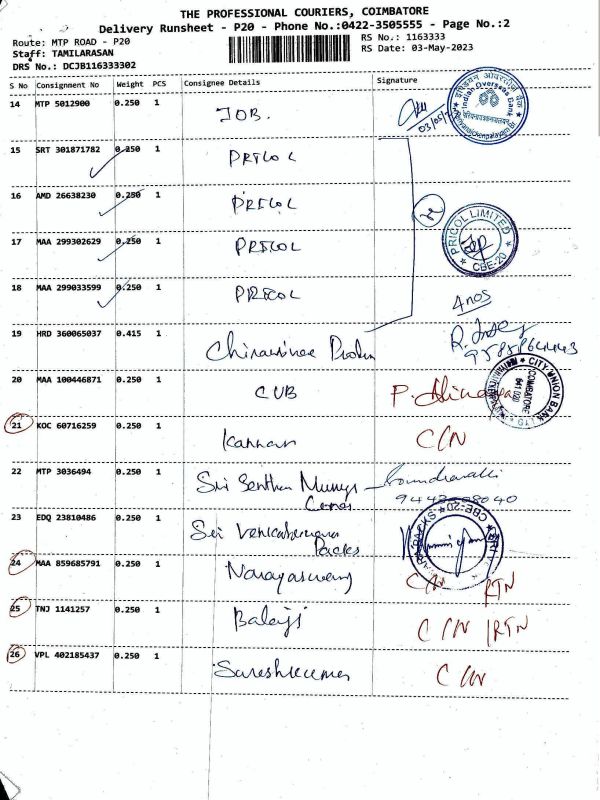 THE PROFESSIONAL COURIERS, COIMBATORE
Delivery Runsheet - P20 - Phone No.:0422-3505555 - Page No.:2
Route: MTP ROAD - P20
RS No.: 1163333
Staff: TAMILARASAN
RS Date: 03-May-2023
DRS No.: DCJB116333302
S No Consignment No Weight PCS Consignee Details Signature
14 MTP 5012900 0.250 1 IOB.
03/05/2
Indian Overseas Bank
15 SRT 301871782 0.250 1 PRICOL
16 AMD 26638230 0.250 1 PRICOL
17 MAA 299302629 0.250 1 PRICOL
PRICOL LIMITED
CBE-20
18 MAA 299033599 0.250 1 PRICOL
4 nos
19 HRD 360065037 0.415 1
20 MAA 100446871 0.250 1 CUB
CITY UNION BANK LTD
COIMBATORE
641 020
21 KOC 60716259 0.250 1 Kannan C/N
22 MTP 3036494 0.250 1 Sri Senthur
23 EDQ 23810486 0.250 1 Sri
Packs
CBE-20
24 MAA 859685791 0.250 1 Narayaswamy C/N RTN
25 TNJ 1141257 0.250 1 Balaji C/N RTN
26 VPL 402185437 0.250 1 Sureshkumar C/N